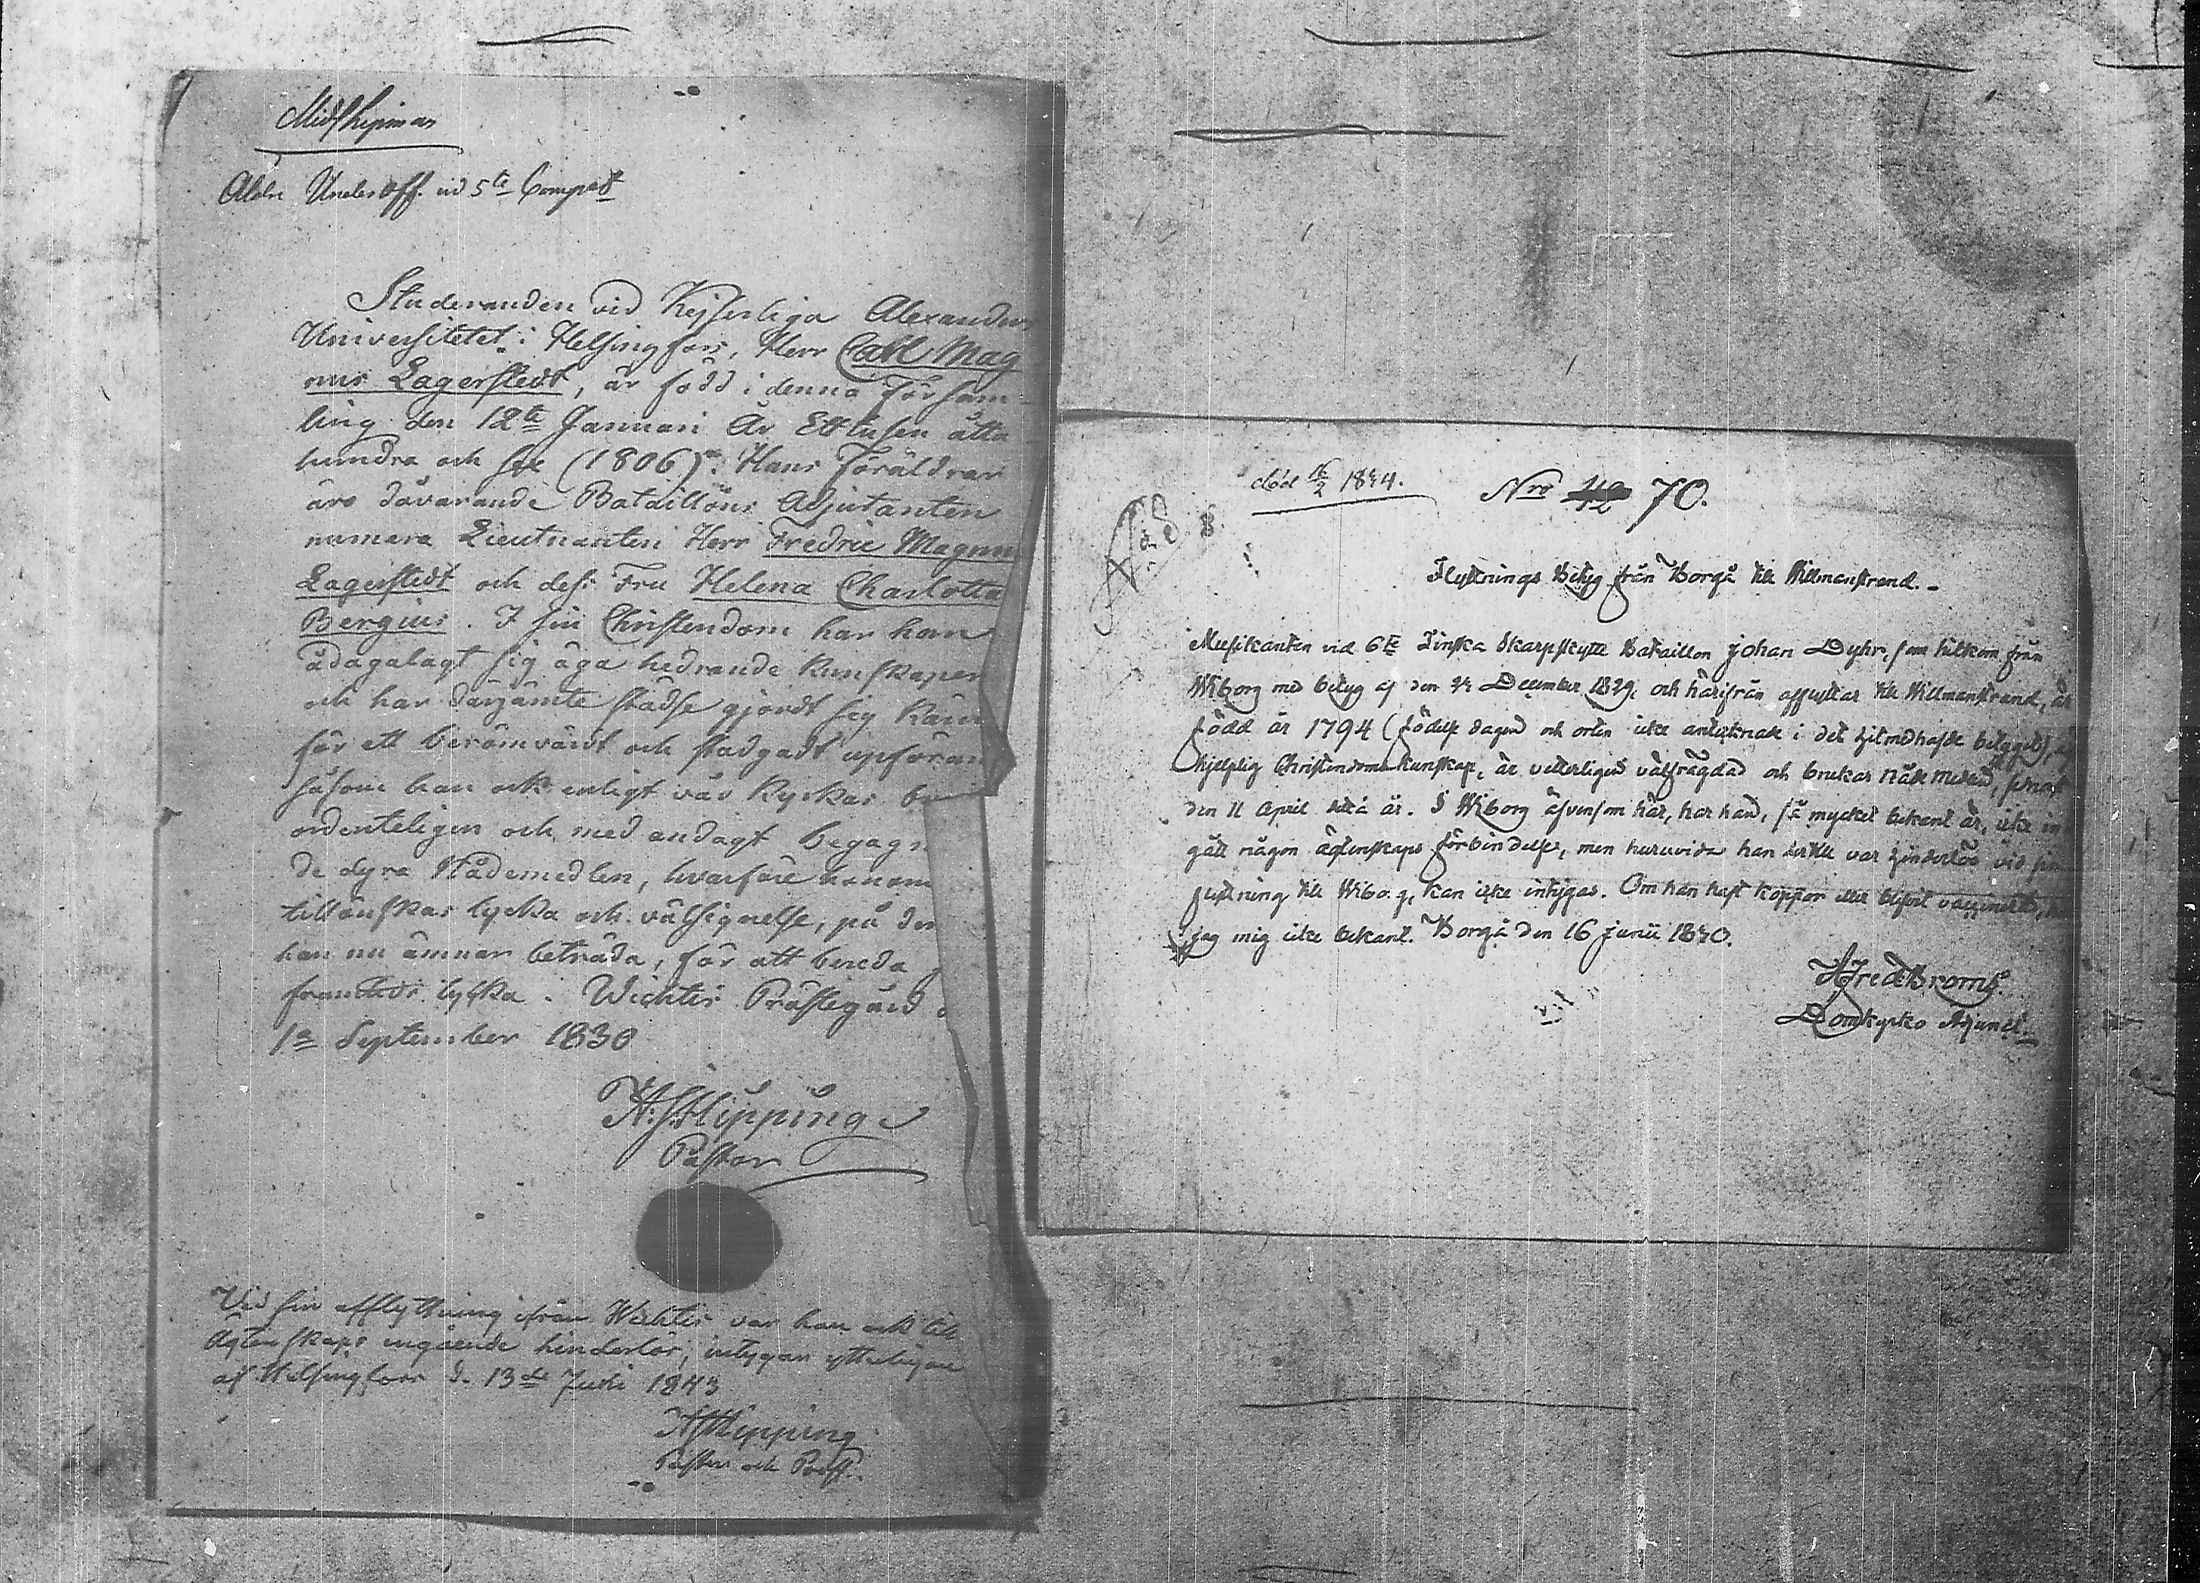 Midshipman
Äldre Underoff. vid 5te Compet
Studeranden vid Kejserliga Alexanders
Universitetet i Helsingfors, Herr Carl Mag
nus Lagerstedt, är född i denna Försam-
ling den 12te Januari År Ett tusen åtta
hundra och sex (1806). Hans Föräldrar
äro dåvarande Bataillons Adjutanten
numera Lieutnanten Herr Fredric Magnus
Lagerstedt och dess Fru Helena Charlotta
Bergius. I sin Christendom har han
ådagalagt sig äga hedrande kunskaper
och har därjämte städse gjordt sig känd
för ett berömvärdt och stadgadt upföran
såsom han ock enligt vår Kyrkas
ordenteligen och med andagt begagn
de dyra Nådemedlen, hvarföre honom
tillönskas lycka och välsignelse, på den
han nu ämnar beträda, för att bereda
framtids lycka. Wichtis Prästegård d
1a September 1830
A. J. Hipping
Pastor
Vid sin afflyttning ifrån Wichtis var han ock till
ägtenskaps ingående hinderlös, intygar ytterligare
af Helsingfors d. 13de Juli 1843
AJHipping
Pastor och Prost.
död 16/2 1844.
Nro 42 70.
Flyttnings Betyg från Borgå till Willmanstrand.-
Musikanten vid 6te Finska Skarpskytte Bataillon Johan Dyhr, som hitkom från
Wiborg med betyg af den December 1829, och härifrån afflyttar till Willmanstrand, är
född år 1794 (födelse dagen och orten icke antecknade i det hitmedhafde betyget),
hjelplig Christendoms kunskap, är veterligen välfrägdad och brukar Nåde medlen, senast
den 11 April detta år. I Wiborg äfvensom här, har han, så mycket bekant är, icke in
gått någon ägtenskaps förbindelse, men huruvida han dertill var hinderlös vid sin
flyttning till Wiborg, kan icke intygas. Om han haft koppor eller blifvit vaccinerad,
jag mig icke bekant. Borgå den 16 Junii 1830.
Fred Broms.
Domkyrko Adjunct.